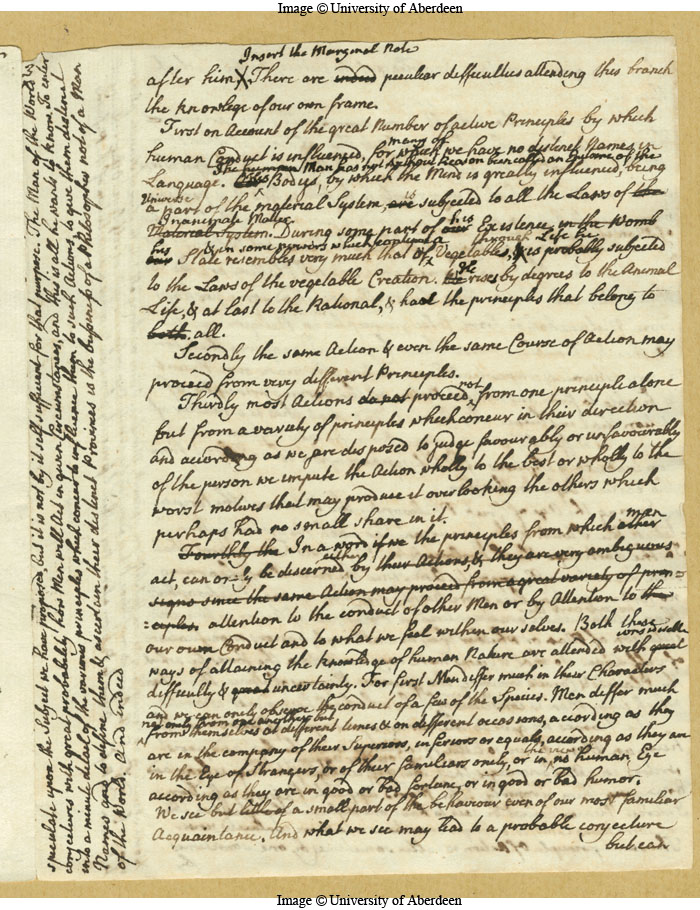 Image © University of Aberdeen
Insert the Marginal Note
after him X There are indeed peculiar difficulties attending this branch
the knowlege of our own frame.
First on Account of the great Number of active Principles by which
many of
human Conduct is influenced, for which we have no distinct Names in
The human Man has not without Reason been called an Epitome of the
Language. Bodies, by which the Mind is greatly influenced, being
Universe
a part of the material System, are is subjected to all the Laws of the
Inanimate Matter.
Material System. During some part of our his Existence in the Womb
& in some persons which continue through Life he
his State resembles very much that of Vegetables, & is probably subjected
to the Laws of the vegetable Creation. We He rises by degrees to the Animal
Life, & at last to the Rational, & had the principles that belong to
both. all.
Secondly the same Action & even the same Course of Action may
proceed from very different Principles.
Thirdly most Actions do not proceed not from one principle alone
but from a variety of principles which concur in their direction
and according as we are disposed to judge favourably or unfavourably
of the person we impute the Action wholly to the best or wholly to the
worst motives that may produce it overlooking the others which
perhaps had no small share in it.
man
Fourthly the In a word if we the principles from which other
act, can only be discerned by their Actions, & they are very ambiguous
signs since the same Action may proceed from a great variety of prin=
=ciples. attention to the conduct of other Men or by Attention to the
our own Conduct and to what we feel within our selves. Both these
ways of attaining the knowledge of human Nature are attended with great
difficulty & great uncertainty. For first Men differ much in their Characters
and we can only observe the conduct of a few of the Species. Men differ much
not only from one another but
from themselves at different times & on different occasions, according as they
are in the company of their Superiors, inferiors or equals, according as they are
in the Eye of Strangers, or of their familiars only, or in the view no human Eye
according as they are in good or bad fortune, or in good or bad humor.
We see but little of a small part of the behaviour even of our most familiar
Acquaintance. And what we see may lead to a probable conjecture
but can
speculate upon the Subject we have proposed, but it is not by it self sufficient for that purpose. The Man of the World
conjectures with great probability how Men will Act in given Circumstances, and this is all he wants to know. To enter
into a minute detail of the various principles which concur to influence them to such Actions, to give them distinct
Names and to define them & ascertain their distinct Provinces is the business of a Philosopher not of a Man
of the World. And indeed
Image © University of Aberdeen